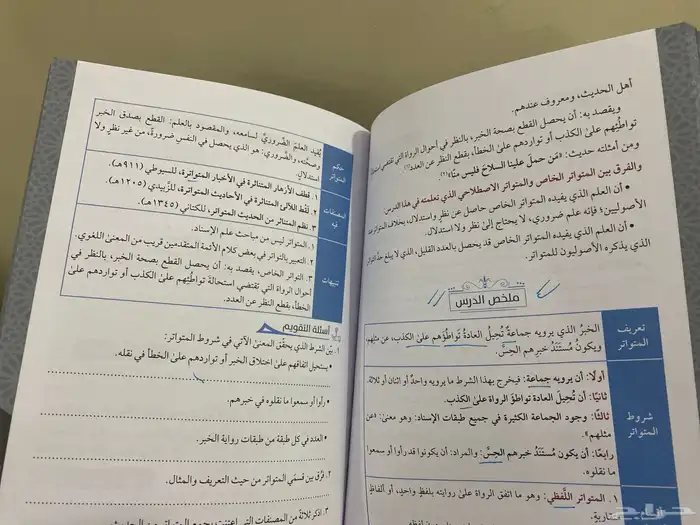 أهل الحديث، ومعروف عندهم.
ويقصد به: أن يحصل القطع بصحة الخبر، بالنظر في أحوال الرواة التي تقتضي استحالة
تواطُئِهم على الكذب أو تواردهم على الخطأ، بقطع النظر عن العدد
ومن أمثلته حديث: «مَن حملَ علينا السلاحَ فليس منَّا»
والفرق بين المتواتر الخاص والمتواتر الاصطلاحي الذي تعلمت في هذا الدرس
• أن العلم الذي يفيده المتواتر الخاص حاصل عن نظر واستدلال، بخلاف المتواتر عند
الأصوليين؛ فإنه علم ضروري، لا يحتاج إلى نظر ولا استدلال.
• أن العلم الذي يفيده المتواتر الخاص قد يحصل بالعدد القليل، الذي لا يبلغ حدَّ التواتر
الذي يذكره الأصوليون للمتواتر.
ملخص الدرس
تعريف المتواتر
الخبرُ الذي يرويه جماعة تُحِيلُ العادةُ تواطُؤَهم على الكذب، عن مثلهم،
ويكونُ مُستَنَدُ خبرِهم الحِسَّ.
شروط المتواتر
أولًا: أن يرويه جماعة: فيخرج بهذا الشرط ما يرويه واحدٌ أو اثنان أو ثلاثة.
ثانيًا: أن تُحِيلَ العادة تواطؤَ الرواة على الكذب.
ثالثًا: وجود الجماعة الكثيرة في جميع طبقات الإسناد: وهو معنى: «عن
مثلهم».
رابعًا: أن يكون مُستَنَدُ خبرهم الحِسَّ: والمراد: أن يكونوا قد رأوا أو سمعوا
ما نقلوه.
١. المتواتر اللَّفظي: وهو ما اتفق الرواة على روايته بلفظٍ واحدٍ، أو ألفاظٍ
حكم المتواتر
يُفيد العلمَ الضَّروريَّ لسامعه، والمقصود بالعلم: القطع بصدق الخبر
وصحته، والضروري: هو الذي يحصل في النفسِ ضرورةً، من غير نظرٍ ولا
استدلال.
المصنفات فيه
١. قطف الأزهار المتناثرة في الأخبار المتواترة، للسيوطي (٩١١هـ).
٢. لقط اللآلئ المتناثرة في الأحاديث المتواترة، للزَّبيدي (١٢٠٥هـ).
٣. نظم المتناثر من الحديث المتواتر، للكتاني (١٣٤٥هـ).
تنبيهات
١. المتواتر ليس من مباحث علم الإسناد.
٢. التعبير بالتواتر في بعض كلام الأئمة المتقدمين قريب من المعنى اللغوي.
٣. التواتر الخاص، يقصد به: أن يحصل القطع بصحة الخبر، بالنظر في
أحوال الرواة التي تقتضي استحالةَ تواطُئِهم على الكذب أو تواردهم على
الخطأ، بقطع النظر عن العدد.
أسئلة التقويم
١. بيّن الشرط الذي يحقّق المعنىٰ الآتي في شروط المتواتر:
• يستحيل اتفاقهم على اختلاق الخبر أو تواردهم على الخطأ في نقله.
• رأوا أو سمعوا ما نقلوه في خبرهم.
• العدد في كل طبقة من طبقات رواية الخبر.
٢. فرِّق بين قسمَي المتواتر من حيث التعريف والمثال.
٣. اذكر ثلاثةً من المصنفات التي اعتنت بجمع المتواتر من الحديث
حراج